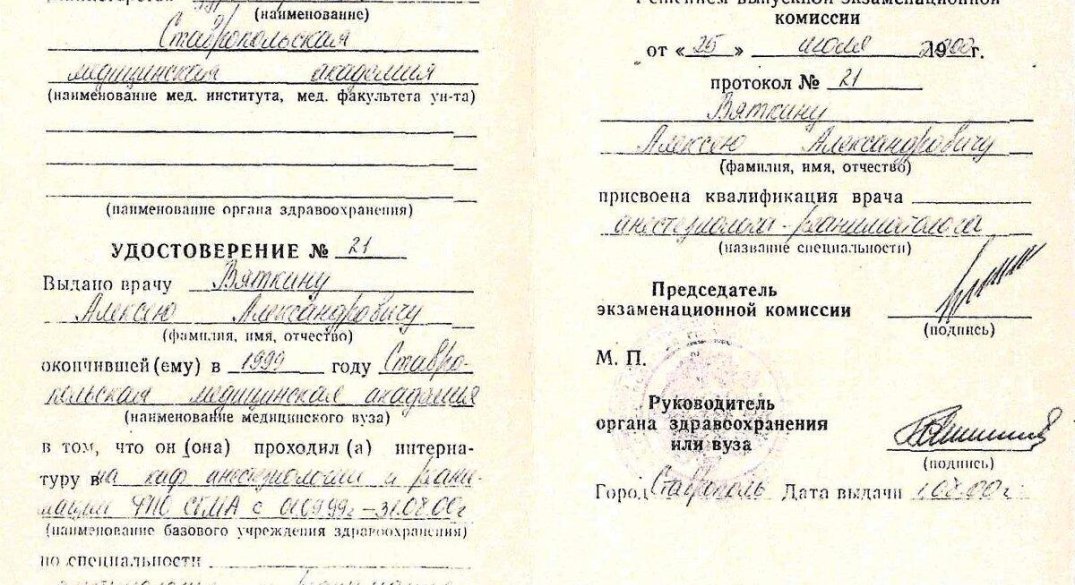 (наименование)
Ставропольская
медицинская академия
(наименование мед. института, мед. факультета ун-та)
(наименование органа здравоохранения)
УДОСТОВЕРЕНИЕ № 21
Выдано врачу Вяткину
Алексею Александровичу
(фамилия, имя, отчество)
окончившей(ему) в 1999 году Ставро-
польская медицинская академия
(наименование медицинского вуза)
в том, что он (она) проходил (а) интерна-
туру в на каф анестезиологии и реани-
мации ФПО СГМА с 010999г – 31.08.00г
(наименование базового учреждения здравоохранения)
по специальности
Решением выпускной экзаменационной
комиссии
от « 25 » июля 2000г.
протокол № 21
Вяткину
Алексею Александровичу
(фамилия, имя, отчество)
присвоена квалификация врача
анестезиолога-реаниматолога
(название специальности)
Председатель
экзаменационной комиссии
(подпись)
М. П.
Руководитель
органа здравоохранения
или вуза
(подпись)
Город Ставрополь Дата выдачи 1.08.00г